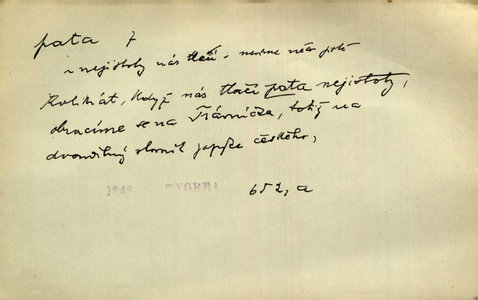 pata 7
~ nejistoty nás tlačí -
Kolikrát, když nás tlačí pata nejistoty,
obracíme se na Trávníčka, totiž na
dvoudílný slovník jazyka českého,
1949 TVORBA 652, a